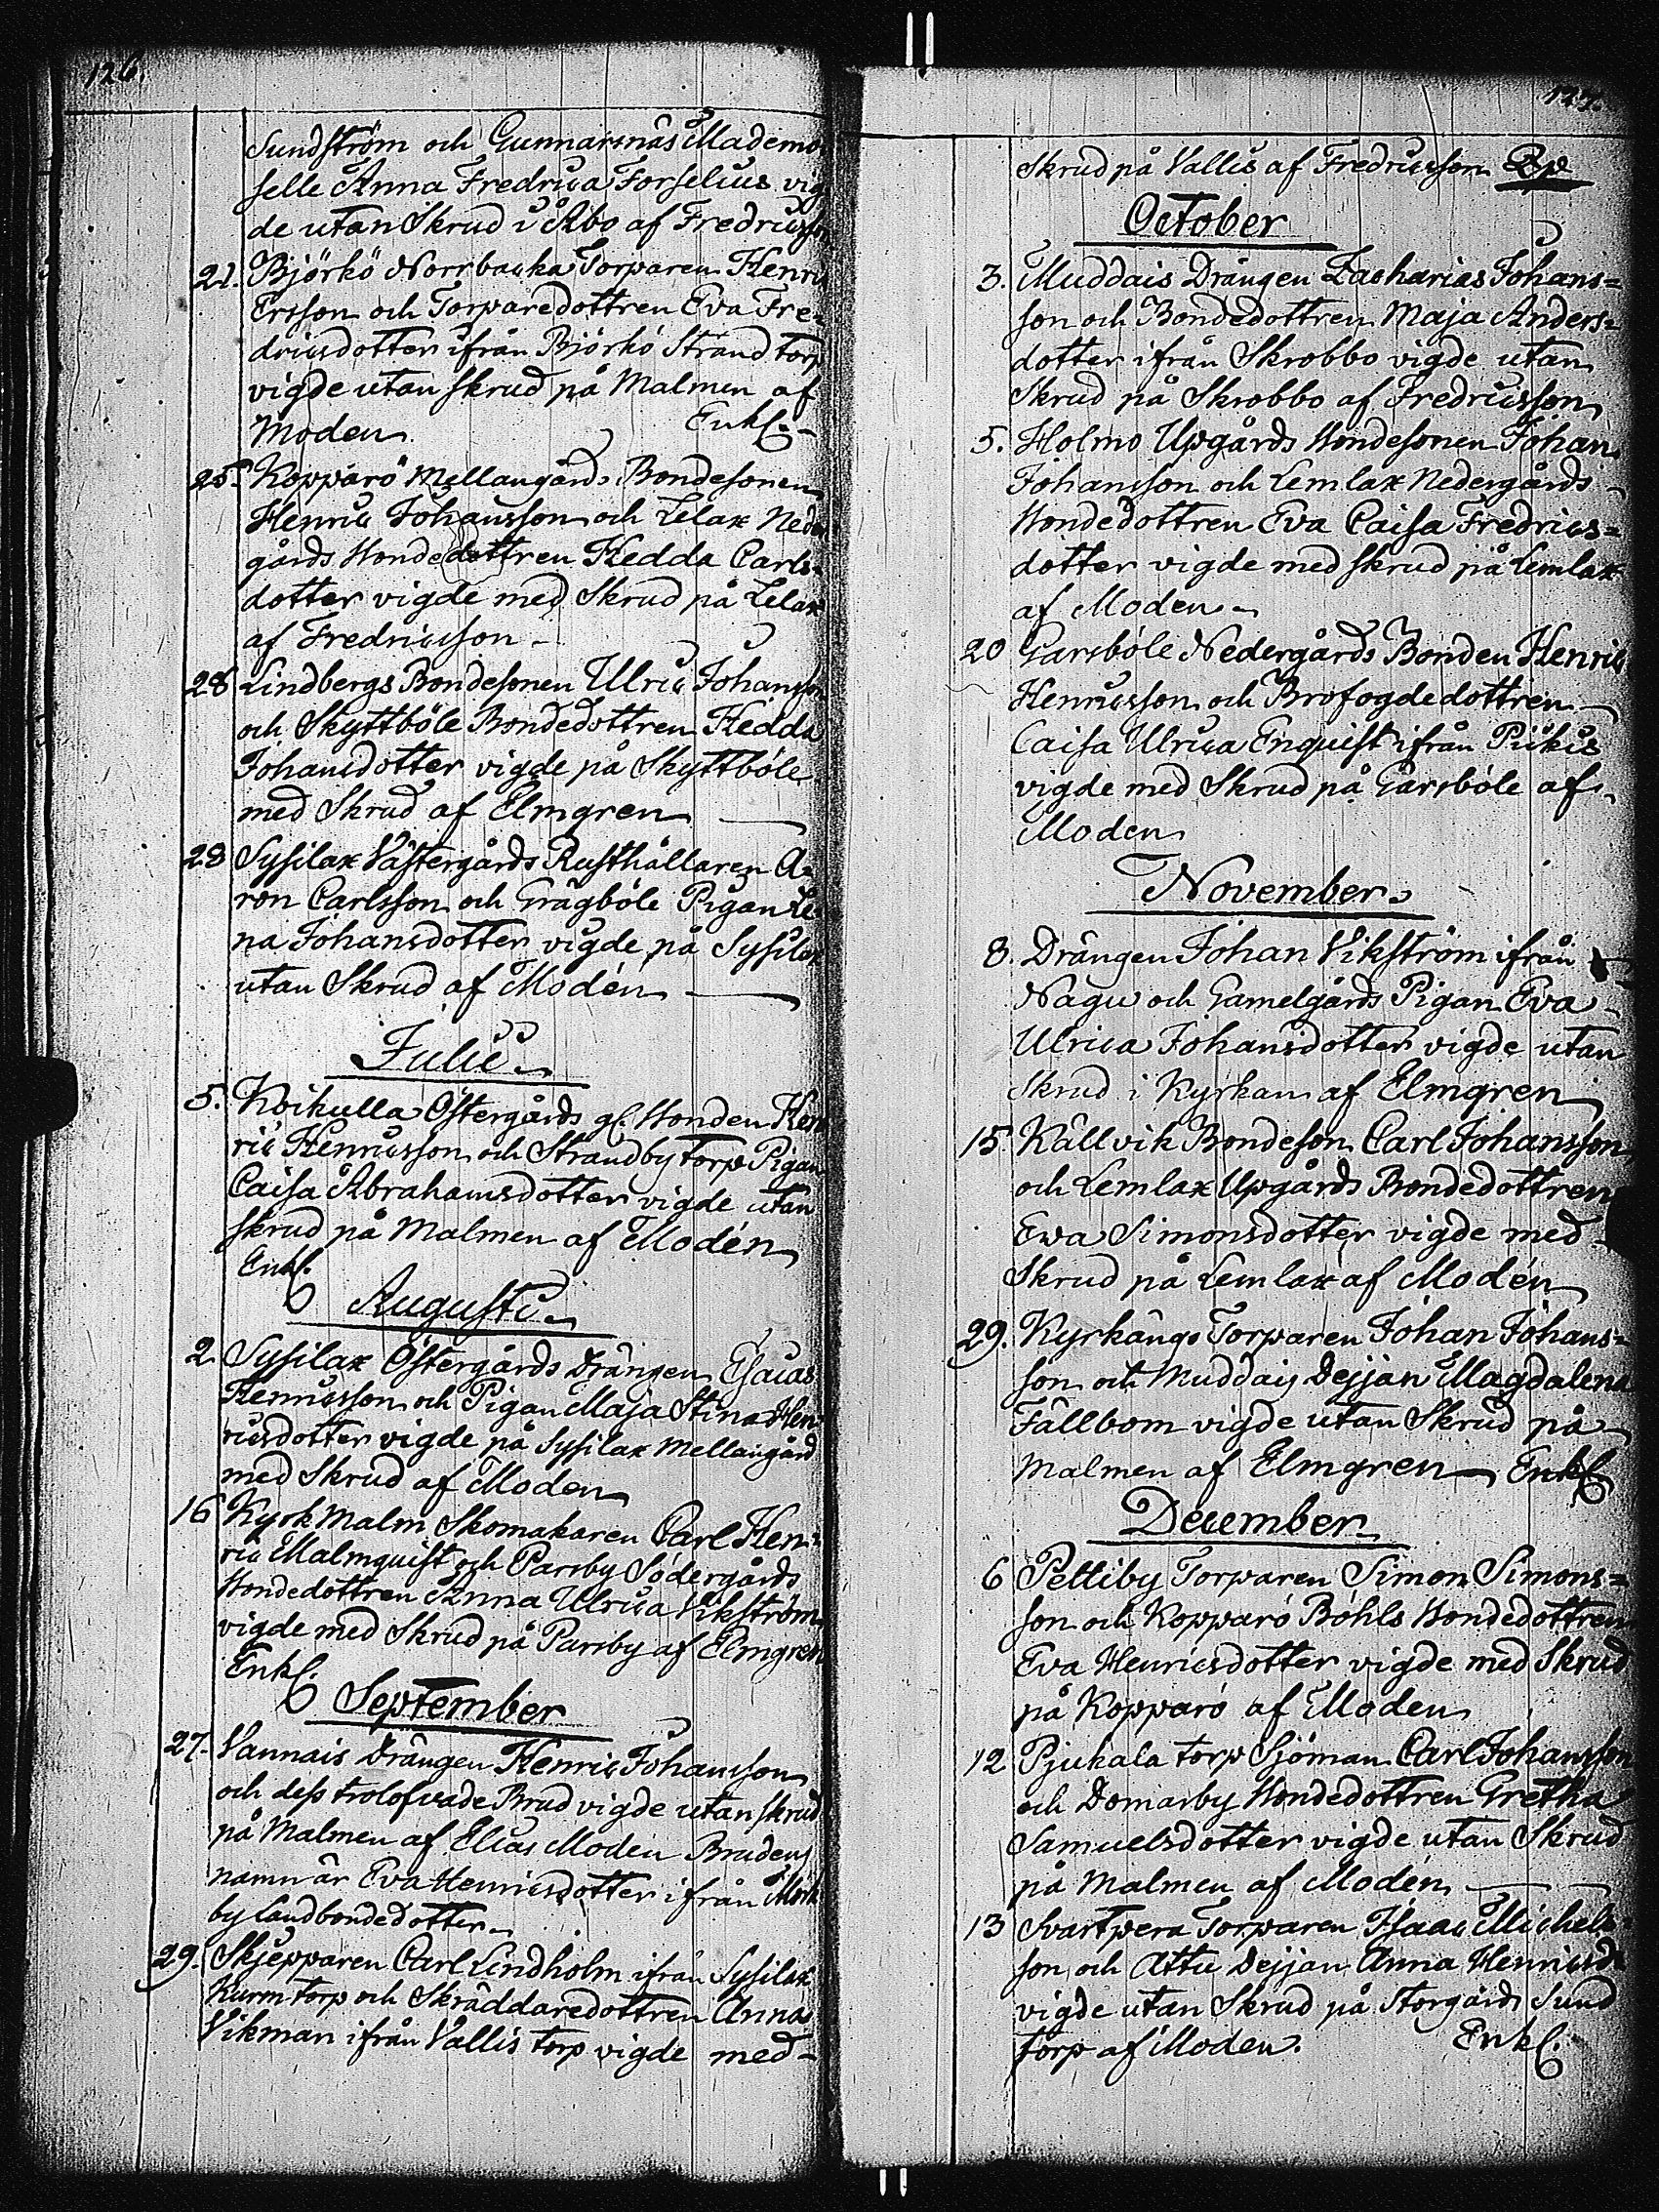 126.
Sundström och Gunnarsnäs Mademo
selle Anna Fredrica Forselius vig
de utan Skrud i Åbo af Fredricsson
21. Björkö Norrbacka Torparen Henric
Ersson och Torparedottren Eva Fre-
dricsdotter ifrån Björkö Strand torp
vigde utan skrud på Malmen af
Moden Enkl.
25. Kopparö Mellangårds Bondesonen
Henric Johansson och Lelax Neder
gårds Hondedottren Hedda Carls-
dotter vigde med Skrud på Lelax
af Fredricsson
28 Lindbergs Bondesonen Ulric Johansson
och Skyttböle Bondedottren Hedda
Johansdotter vigde på Skyttböle
med Skrud af Elmgren
28 Sysilax Västergårds Rusthållaren A-
ron Carlsson och Grägböle Pigan Le-
na Johansdotter vigde på Sysilax
utan Skrud af Modén
Julii
5. Koikulla Östergårds gl. Honden Hen
ric Henricsson och Strandby torp Pigan
Caisa Abrahamsdotter vigde utan
skrud på Malmen af Modén
Enkl.
Augusti
2. Sysilax Östergårds Drängen Esaias
Henricsson och Pigan Maja Stina Hen
ricsdotter vigde på Sysilax Mellangård
med Skrud af Moden
16 Kyrk Malm Skomakaren Carl Hen-
ric Malmquist och Parsby Södergårds
Hondedottren Anna Ulrica Vikström
vigde med Skrud på Parsby af Elmgren
Enkl.
September
27. Vannais Drängen Henric Johansson
och dess trolofvade Brud vigde utan skrud
på Malmen af Elias Moden Brudens
namn är Eva Henricsdotter ifrån Mörk
by Landbondedotter
29. Skjepparen Carl Lindholm ifrån Sysilax
Kurm torp och Skräddaredottren Anna
Vikman ifrån Vallis torp vigde med
127.
Skrud på Vallis af Fredricsson
October
3. Muddais Drängen Zacharias Johans=
son och Bondedottren Maja Anders=
dotter ifrån Skrobbo vigde utan
Skrud på Skrobbo af Fredricsson
5. Holmo Upgårds Hondesonen Johan
Johansson och Lemlax Nedergårds
Hondedottren Eva Caisa Fredrics=
dotter vigde med skrud på Lemlax
af Moden
20 Garsböle Nedergårds Bonden Henric
Henricsson och Brofogdedottren
Caisa Ulrica Enquist ifrån Piikis
vigde med Skrud på Garsböle af
Moden
November
8. Drängen Johan Vikström ifrån
Nagu och Gamelgårds Pigan Eva
Ulrica Johansdotter vigde utan
Skrud i Kyrkan af Elmgren
15. Källvik Bondeson Carl Johansson
och Lemlax Upgårds Bondedottren
Ewa Simonsdotter vigde med
Skrud på Lemlax af Modén
29. Kyrkängs Torparen Johan Johans=
son och Muddais Dejjan Magdalena
Fällbom vigde utan Skrud på
Malmen af Elmgren Enkl
December
6 Pettiby Torparen Simon Simons=
son och Kopparö Böhls Hondedottren
Eva Henricsdotter vigde med Skrud
på Kopparö af Moden
12 Pjukala torp Sjöman Carl Johansson
och Domarby Hondedottren Gretha
Samuelsdotter vigde utan Skrud
på Malmen af Modén
13 Svartpera Torparen Isaac Michels-
son och Attu Dejjan Anna Henricsd
vigde utan Skrud på Storgårds Sund
torp af Moden. Enkl.